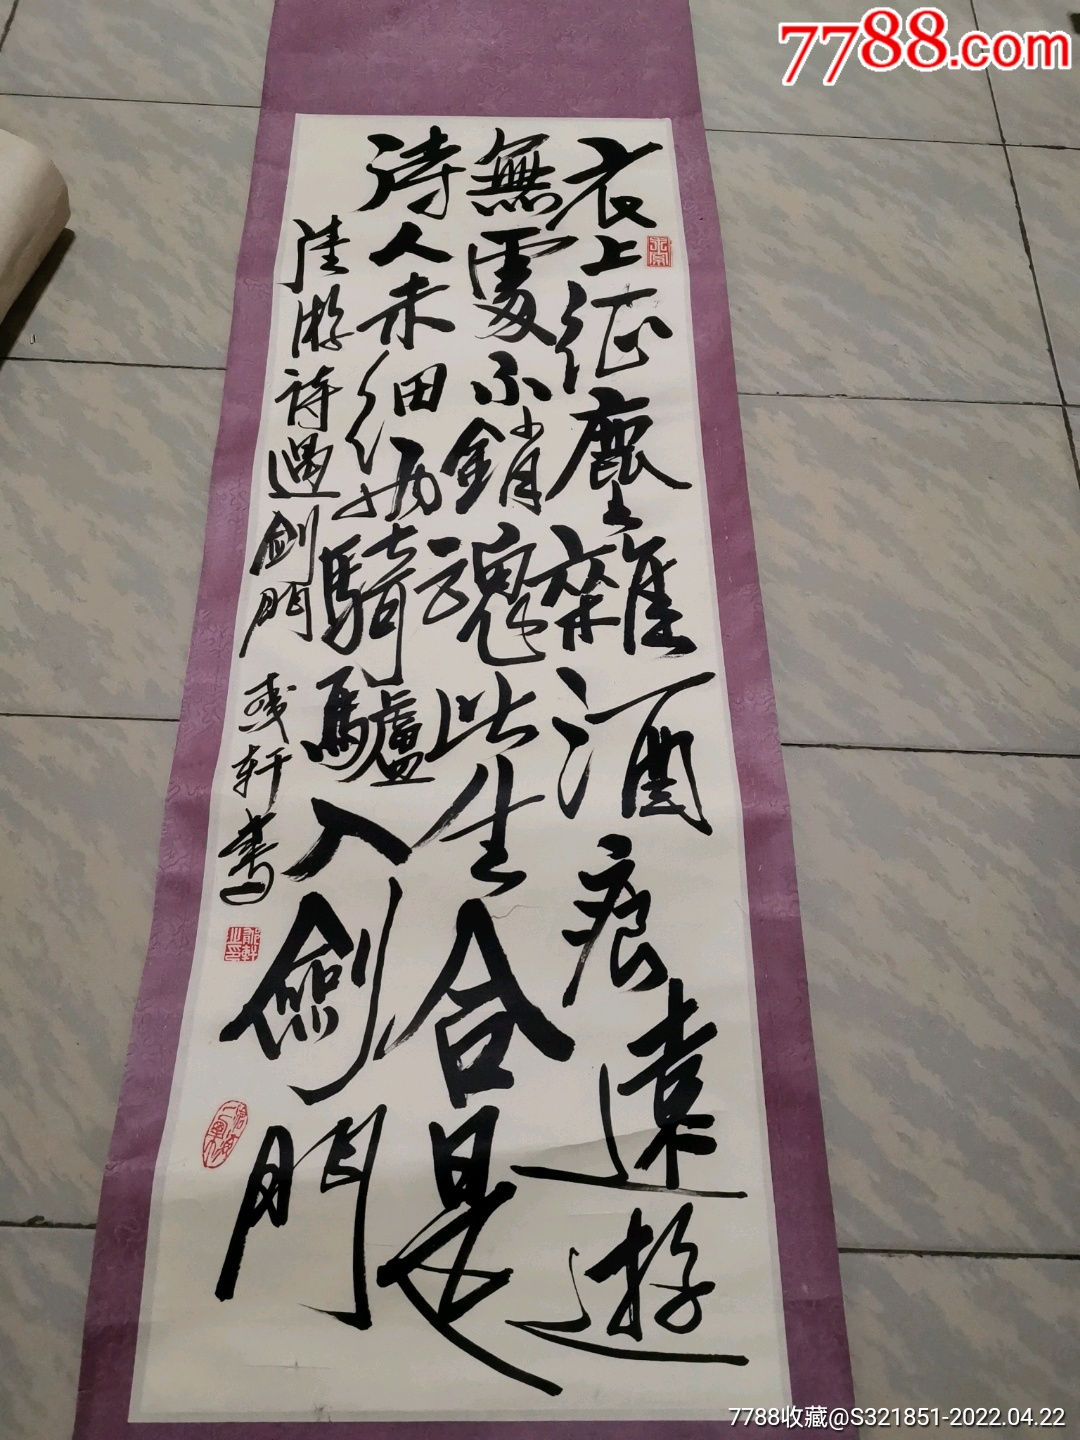 7788.com
衣上征塵雜酒痕遠遊
無處不銷魂此生合是
詩人未細雨騎驢入劍門
陸游詩過劍門 彧轩書
7788收藏@S321851-2022.04.22